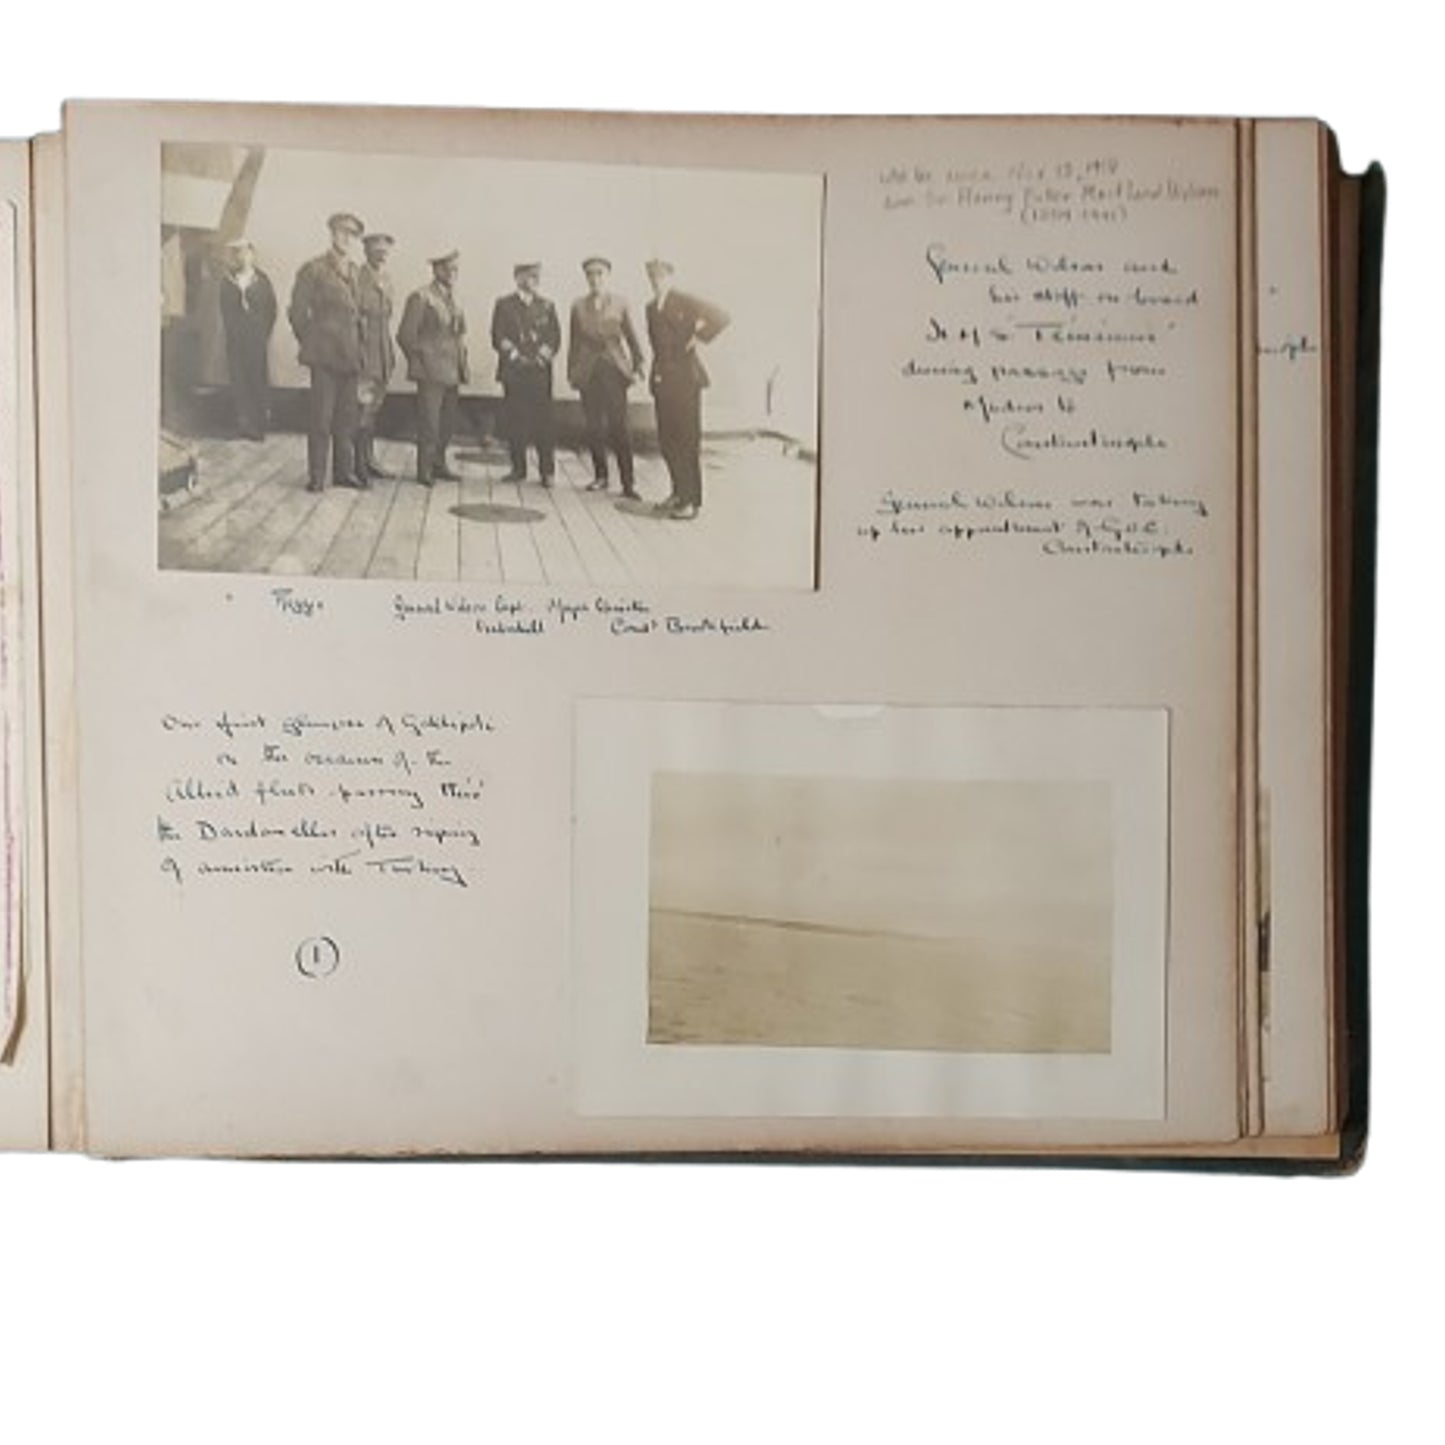 Nov 13, 1918
Sir Henry Fuller Maitland Wilson
General Wilson and
his staff on board
H M S 'Temeraire'
during passage from
Mudros to
Constantinople
General Wilson was taking
up his appointment of G.O.C.
Constantinople
General Wilson Capt. Major Christie
Comdr Brookfield
Our first glimpse of Gallipoli
on the occasion of the
Allied fleets passing thro'
the Dardanelles after signing
of armistice with Turkey
1